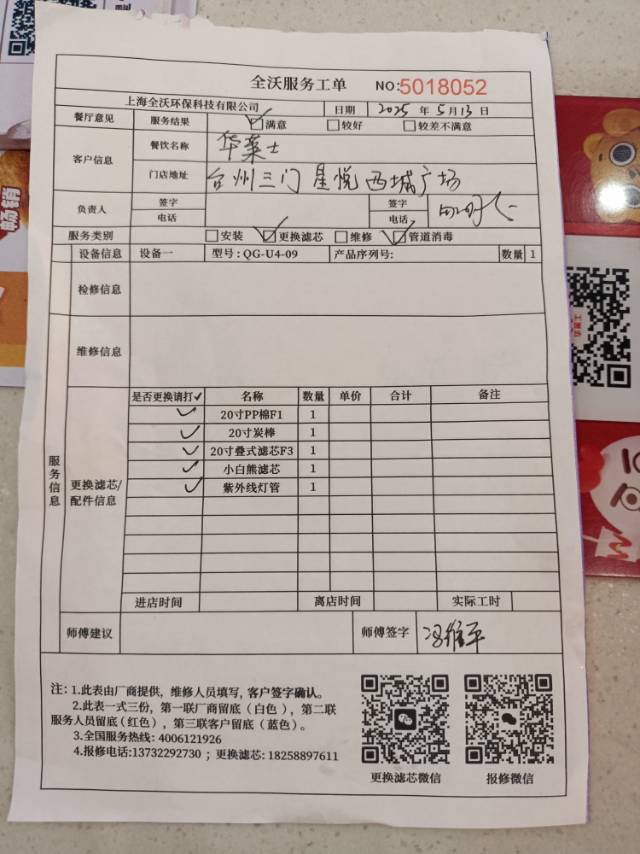 全沃服务工单 NO:5018052
上海全沃环保科技有限公司 日期 2025 年 5 月 13 日
餐厅意见 服务结果 ☑满意 □较好 □较差不满意
客户信息 餐饮名称 华莱士
门店地址 台州三门星悦西城广场
负责人 签字 电话 签字 电话
服务类别 □安装 ☑更换滤芯 □维修 ☑管道消毒
服务信息
设备信息 设备一 型号:QG-U4-09 产品序列号: 数量 1
检修信息
维修信息
更换滤芯/配件信息
是否更换请打✓ 名称 数量 单价 合计 备注
✓ 20寸PP棉F1 1
✓ 20寸炭棒 1
✓ 20寸叠式滤芯F3 1
✓ 小白熊滤芯 1
✓ 紫外线灯管 1
进店时间 离店时间 实际工时
师傅建议 师傅签字 冯维平
注:1.此表由厂商提供,维修人员填写,客户签字确认。
2.此表一式三份,第一联厂商留底(白色),第二联
服务人员留底(红色),第三联客户留底(蓝色)。
3.全国服务热线:4006121926
4.报修电话:13732292730;更换滤芯:18258897611
更换滤芯微信 报修微信